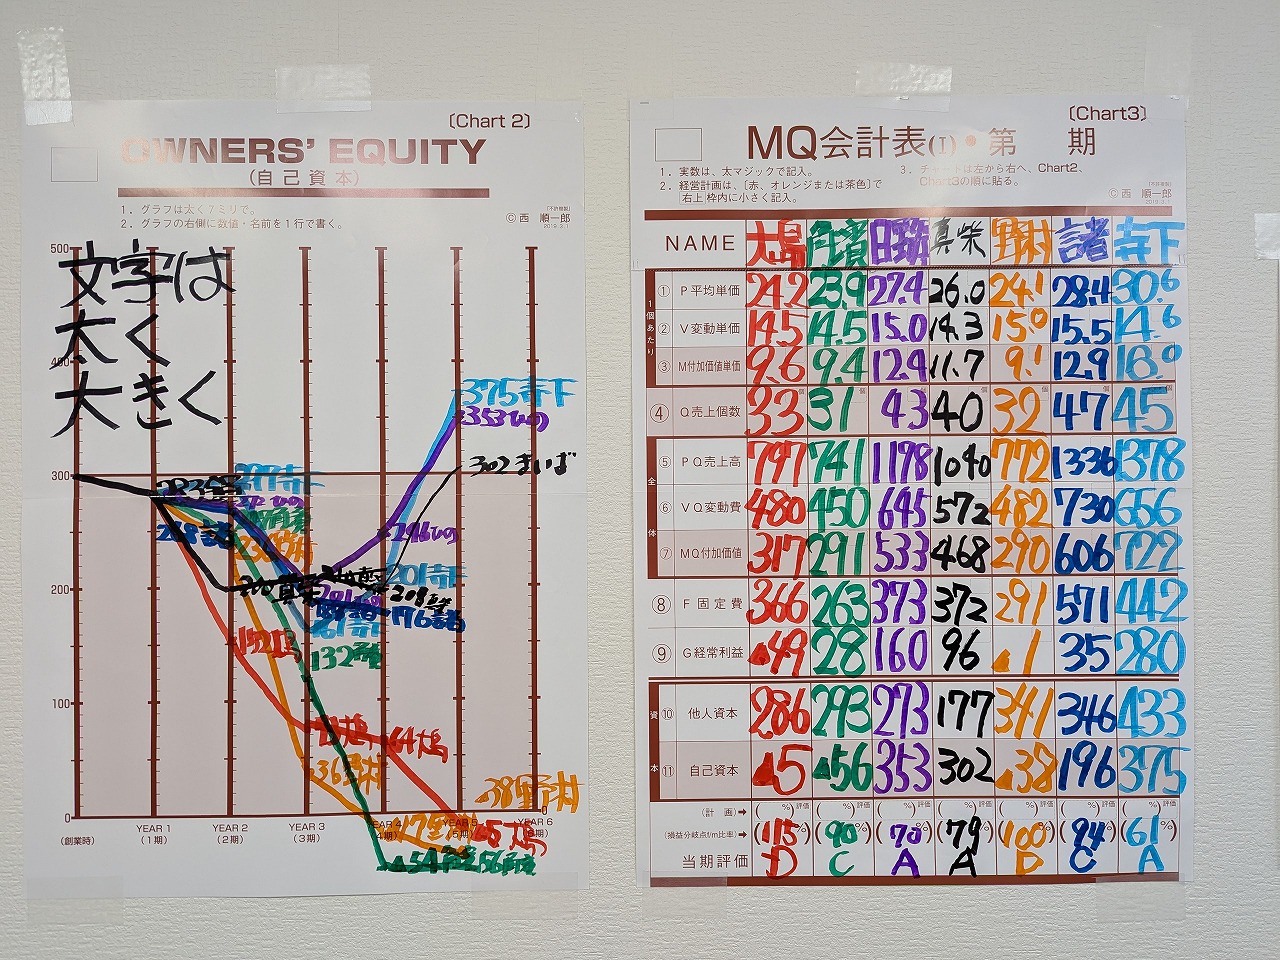 〔Chart 2〕
OWNERS' EQUITY
(自己資本)
1．グラフは太く7ミリで。
2．グラフの右側に数値・名前を1行で書く。
Ⓒ西 順一郎
文字は
太く
大きく
500
400
300
200
100
0
375寺下
353ひの
302まいば
246ひの
201寺下
208
196諸
200真柴
132
152大島
64大島
36野村
38野村
56角濱
(創業時)
YEAR 1
(1期)
YEAR 2
(2期)
YEAR 3
(3期)
YEAR 4
(4期)
YEAR 5
(5期)
YEAR 6
(6期)
〔Chart3〕
MQ会計表(I)・第 期
1．実数は、太マジックで記入。
2．経営計画は、〔赤、オレンジまたは茶色〕で
右上枠内に小さく記入。
3．チャートは左から右へ、Chart2、
Chart3の順に貼る。
Ⓒ西 順一郎
NAME 大島 角濱 日野 真柴 野村 諸者 寺下
1個あたり
① P平均単価 24.2 23.9 27.4 26.0 24.1 28.4 30.6
② V変動単価 14.5 14.5 15.0 14.3 15.0 15.5 14.6
③ M付加価値単価 9.6 9.4 12.4 11.7 9.1 12.9 16.0
④ Q売上個数 33 31 43 40 32 47 45
全体
⑤ PQ売上高 797 741 1178 1040 772 1336 1378
⑥ VQ変動費 480 450 645 572 482 730 656
⑦ MQ付加価値 317 291 533 468 290 606 722
⑧ F固定費 366 263 373 372 291 571 442
⑨ G経常利益 ▲49 28 160 96 ▲1 35 280
資本
⑩ 他人資本 286 293 273 177 341 346 433
⑪ 自己資本 ▲5 ▲56 353 302 ▲38 196 375
(計 画)➡ ( %)評価 ( %)評価 ( %)評価 ( %)評価 ( %)評価 ( %)評価 ( %)評価
(損益分岐点f/m比率)➡ (115%) (90%) (70%) (79%) (100%) (94%) (61%)
当期評価 D C A A D C A